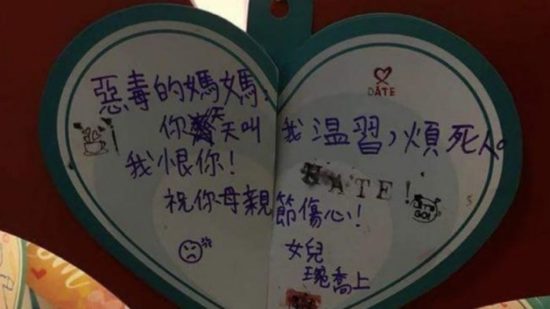 DATE
惡毒的媽媽:
你天天叫我溫習,煩死人。
我恨你! HATE!
祝你母親節傷心!
GO!
女兒
琬喬上